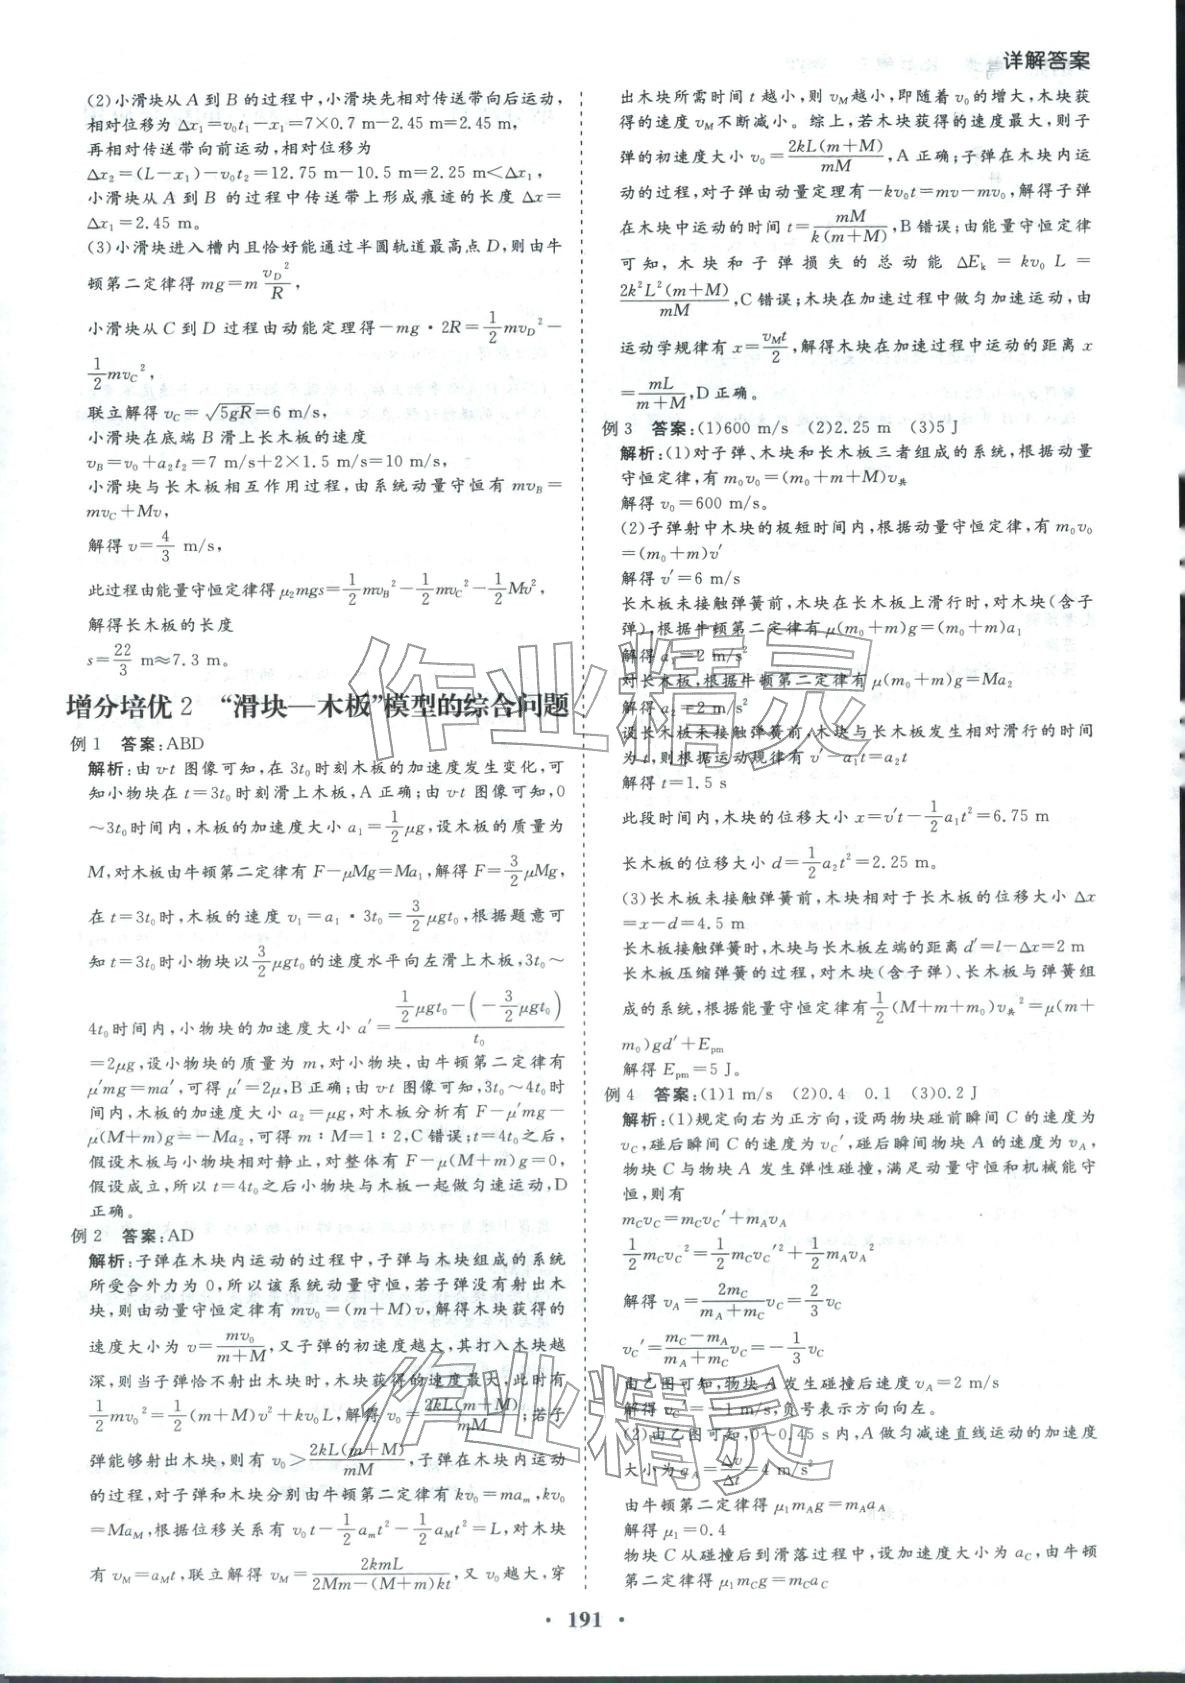 详解答案
(2)小滑块从 A 到 B 的过程中,小滑块先相对传送带向后运动,
相对位移为 Δx₁=v₀t₁-x₁=7×0.7 m-2.45 m=2.45 m,
再相对传送带向前运动,相对位移为
Δx₂=(L-x₁)-v₀t₂=12.75 m-10.5 m=2.25 m<Δx₁,
小滑块从 A 到 B 的过程中传送带上形成痕迹的长度 Δx=
Δx₁=2.45 m。
(3)小滑块进入槽内且恰好能通过半圆轨道最高点 D,则由牛
顿第二定律得 mg=m v_D²/R,
小滑块从 C 到 D 过程由动能定理得-mg·2R=1/2 mv_D²-
1/2 mv_C²,
联立解得 v_C=√(5gR)=6 m/s,
小滑块在底端 B 滑上长木板的速度
v_B=v₀+a₂t₂=7 m/s+2×1.5 m/s=10 m/s,
小滑块与长木板相互作用过程,由系统动量守恒有 mv_B=
mv_C+Mv,
解得 v=4/3 m/s,
此过程由能量守恒定律得 μ₂mgs=1/2 mv_B²-1/2 mv_C²-1/2 Mv²,
解得长木板的长度
s=22/3 m≈7.3 m。
增分培优 2 “滑块—木板”模型的综合问题
例 1 答案:ABD
解析:由 v-t 图像可知,在 3t₀时刻木板的加速度发生变化,可
知小物块在 t=3t₀时刻滑上木板,A 正确;由 v-t 图像可知,0
～3t₀时间内,木板的加速度大小 a₁=1/2 μg,设木板的质量为
M,对木板由牛顿第二定律有 F-μMg=Ma₁,解得 F=3/2 μMg,
在 t=3t₀时,木板的速度 v₁=a₁·3t₀=3/2 μgt₀,根据题意可
知 t=3t₀时小物块以 3/2 μgt₀的速度水平向左滑上木板,3t₀～
4t₀时间内,小物块的加速度大小 a′=(1/2 μgt₀-(-3/2 μgt₀))/t₀
=2μg,设小物块的质量为 m,对小物块,由牛顿第二定律有
μ′mg=ma′,可得 μ′=2μ,B 正确;由 v-t 图像可知,3t₀～4t₀时
间内,木板的加速度大小 a₂=μg,对木板分析有 F-μ′mg-
μ(M+m)g=-Ma₂,可得 m∶M=1∶2,C 错误;t=4t₀之后,
假设木板与小物块相对静止,对整体有 F-μ(M+m)g=0,
假设成立,所以 t=4t₀之后小物块与木板一起做匀速运动,D
正确。
例 2 答案:AD
解析:子弹在木块内运动的过程中,子弹与木块组成的系统
所受合外力为 0,所以该系统动量守恒,若子弹没有射出木
块,则由动量守恒定律有 mv₀=(m+M)v,解得木块获得的
速度大小为 v=mv₀/(m+M),又子弹的初速度越大,其打入木块越
深,则当子弹恰不射出木块时,木块获得的速度最大,此时有
1/2 mv₀²=1/2 (m+M)v²+kv₀L,解得 v₀=2kL(m+M)/mM;若子
弹能够射出木块,则有 v₀>2kL(m+M)/mM,子弹在木块内运动
的过程,对子弹和木块分别由牛顿第二定律有 kv₀=maₘ,kv₀
=Ma_M,根据位移关系有 v₀t-1/2 aₘt²-1/2 a_Mt²=L,对木块
有 v_M=a_Mt,联立解得 v_M=2kmL/(2Mm-(M+m)kt),又 v₀越大,穿
出木块所需时间 t 越小,则 v_M越小,即随着 v₀的增大,木块获
得的速度 v_M不断减小。综上,若木块获得的速度最大,则子
弹的初速度大小 v₀=2kL(m+M)/mM,A 正确;子弹在木块内运
动的过程,对子弹由动量定理有-kv₀t=mv-mv₀,解得子弹
在木块中运动的时间 t=mM/k(m+M),B 错误;由能量守恒定律
可知,木块和子弹损失的总动能 ΔE_k=kv₀L=
2k²L²(m+M)/mM,C 错误;木块在加速过程中做匀加速运动,由
运动学规律有 x=v_Mt/2,解得木块在加速过程中运动的距离 x
=mL/(m+M),D 正确。
例 3 答案:(1)600 m/s (2)2.25 m (3)5 J
解析:(1)对子弹、木块和长木板三者组成的系统,根据动量
守恒定律,有 m₀v₀=(m₀+m+M)v共
解得 v₀=600 m/s。
(2)子弹射中木块的极短时间内,根据动量守恒定律,有 m₀v₀
=(m₀+m)v′
解得 v′=6 m/s
长木板未接触弹簧前,木块在长木板上滑行时,对木块(含子
弹),根据牛顿第二定律有 μ(m₀+m)g=(m₀+m)a₁
解得 a₁=2 m/s²
对长木板,根据牛顿第二定律有 μ(m₀+m)g=Ma₂
解得 a₂=2 m/s²
设长木板未接触弹簧前,木块与长木板发生相对滑行的时间
为 t,则根据运动规律有 v′-a₁t=a₂t
解得 t=1.5 s
此段时间内,木块的位移大小 x=v′t-1/2 a₁t²=6.75 m
长木板的位移大小 d=1/2 a₂t²=2.25 m。
(3)长木板未接触弹簧前,木块相对于长木板的位移大小 Δx
=x-d=4.5 m
长木板接触弹簧时,木块与长木板左端的距离 d′=l-Δx=2 m
长木板压缩弹簧的过程,对木块(含子弹)、长木板与弹簧组
成的系统,根据能量守恒定律有 1/2 (M+m+m₀)v共²=μ(m+
m₀)gd′+E_pm
解得 E_pm=5 J。
例 4 答案:(1)1 m/s (2)0.4 0.1 (3)0.2 J
解析:(1)规定向右为正方向,设两物块碰前瞬间 C 的速度为
v_C,碰后瞬间 C 的速度为 v_C′,碰后瞬间物块 A 的速度为 v_A,
物块 C 与物块 A 发生弹性碰撞,满足动量守恒和机械能守
恒,则有
m_Cv_C=m_Cv_C′+m_Av_A
1/2 m_Cv_C²=1/2 m_Cv_C′²+1/2 m_Av_A²
解得 v_A=2m_C/(m_A+m_C) v_C=2/3 v_C
v_C′=(m_C-m_A)/(m_A+m_C) v_C=-1/3 v_C
由乙图可知,物块 A 发生碰撞后速度 v_A=2 m/s
解得 v_C′=-1 m/s,负号表示方向向左。
(2)由乙图可知,0～0.45 s 内,A 做匀减速直线运动的加速度
大小为 a_A=Δv/Δt=4 m/s²
由牛顿第二定律得 μ₁m_Ag=m_Aa_A
解得 μ₁=0.4
物块 C 从碰撞后到滑落过程中,设加速度大小为 a_C,由牛顿
第二定律得 μ₁m_Cg=m_Ca_C
作业精灵
作业精灵
· 191 ·